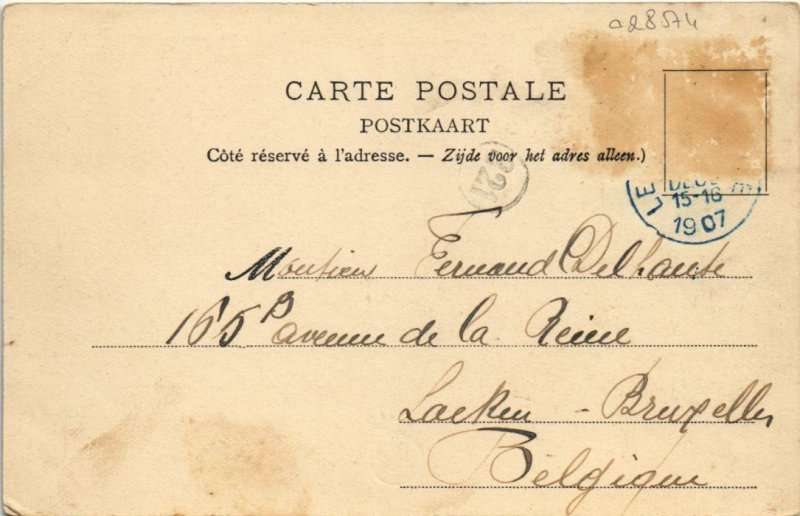 a28574
CARTE POSTALE
POSTKAART
Côté réservé à l'adresse. — Zijde voor het adres alleen.)
321
LE
15-16
1907
Monsieur Fernand Delhaute
165 B avenue de la Reine
Laeken - Bruxelles
Belgique